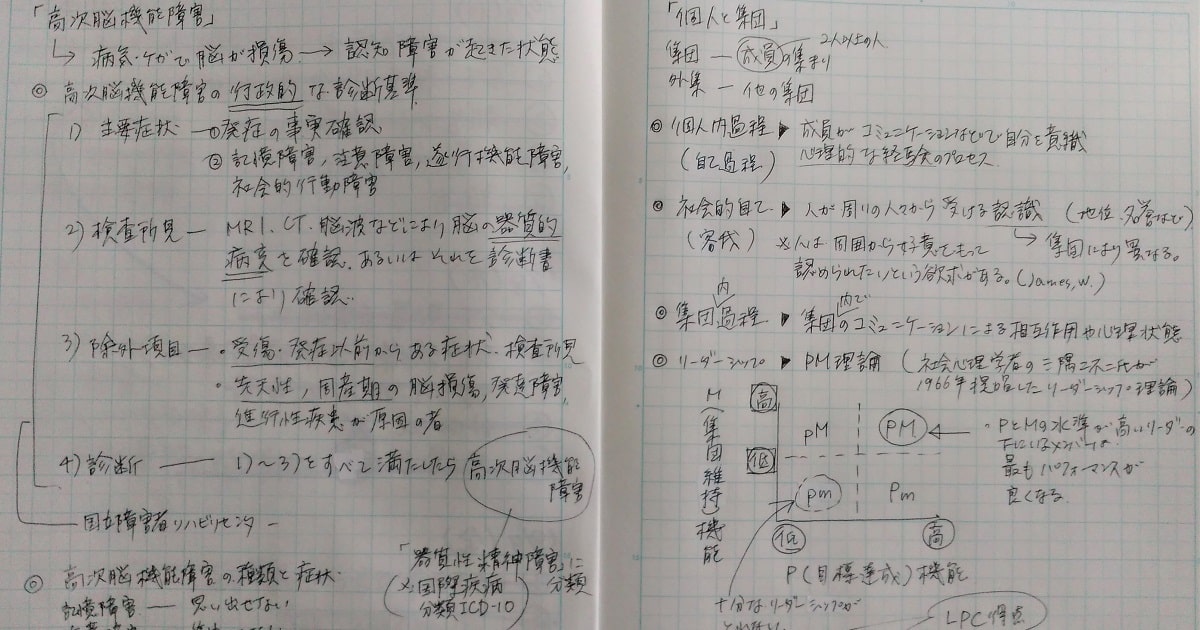 「高次脳機能障害」
↳ 病気・ケガで脳が損傷 → 認知障害が起きた状態
◎ 高次脳機能障害の行政的な診断基準
1) 主要症状 ― ①発症の事実確認
②記憶障害, 注意障害, 遂行機能障害,
社会的行動障害
2) 検査所見 ― MRI, CT, 脳波などにより脳の器質的
病変を確認、あるいはそれを診断書
により確認…
3) 除外項目 ― ・受傷・発症以前からある症状・検査所見
・先天性, 周産期の脳損傷, 発達障害,
進行性疾患が原因の者
4) 診断 ― 1)〜3)をすべて満たしたら高次脳機能
障害
国立障害者リハビリセンター
「器質性精神障害」に
分類
(※国際疾病
分類ICD-10)
◎ 高次脳機能障害の種類と症状
記憶障害 ― 思い出せない
「個人と集団」
集団 ― 成員の集まり 2人以上の人
外集 ― 他の集団
◎ 個人内過程 ▶ 成員がコミュニケーションなどで自分を意識
(自己過程) 心理的な経験のプロセス
◎ 社会的自己 ▶ 人が周りの人々から受ける認識 (地位、名誉など)
→ 集団により異なる。
(客我) ※人は周囲から好意をもって
認められたいという欲求がある。(James, W.)
◎ 集団内過程 ▶ 集団内でのコミュニケーションによる相互作用や心理状態
◎ リーダーシップ ▶ PM理論 (社会心理学者の三隅二不二氏が
1966年提唱したリーダーシップ理論)
M(集団維持)機能
高
pM PM
・PとMの水準が高いリーダーの
下にいるメンバーは、
最もパフォーマンスが
良くなる
低
pm Pm
低 高
P(目標達成)機能
十分なリーダーシップが
とれない
LPC得点